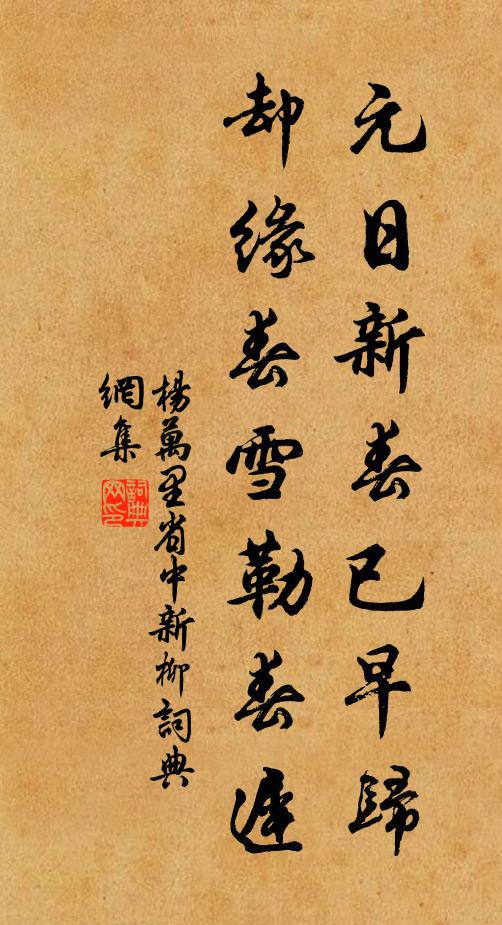 元日新春已早歸
却緣春雪勒春遲
楊萬里省中新柳詞典
網集
詞典
网印